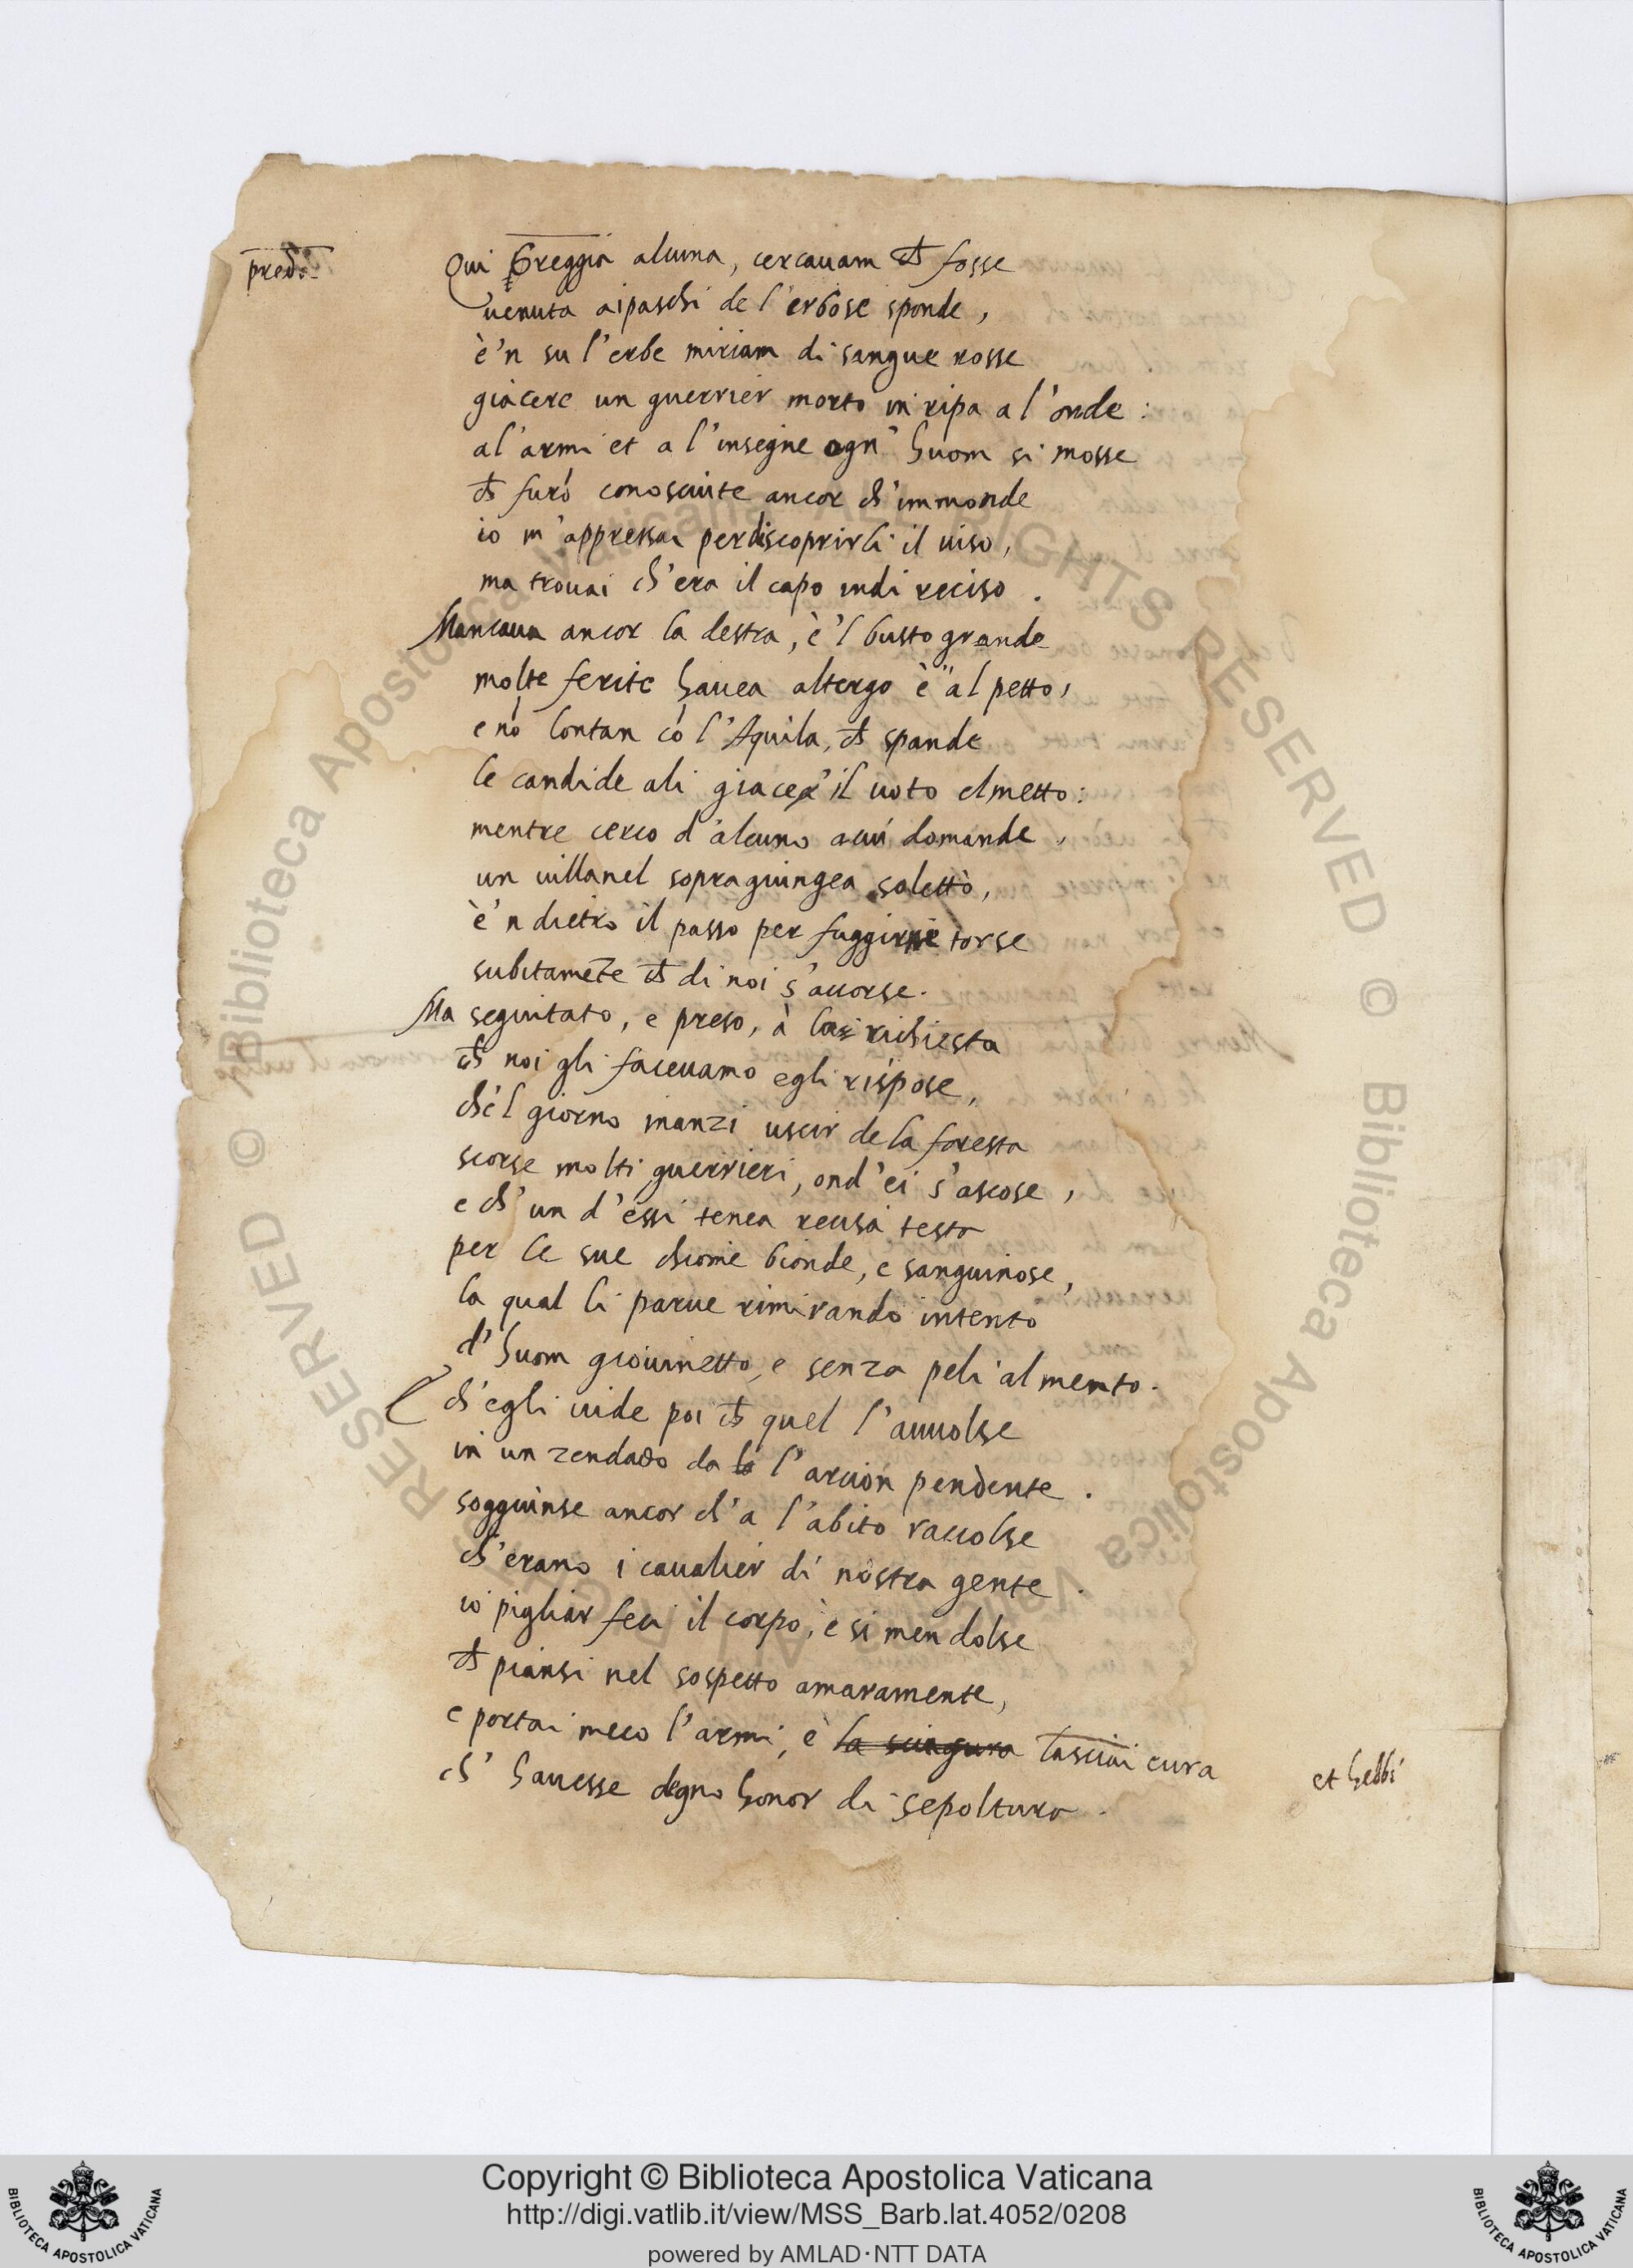 pred.
Qui Greggia alcuna, cercavam ch̄ fosse
venuta ai paschi de l'erbose sponde,
è'n su l'erbe miriam di sangue rosse
giacere un guerrier morto in ripa a l'onde:
al'armi et a l'insegne ogn'huom si mosse
ch̄ furō conosciute ancor ch'immonde
io m'appressai per discoprirli il viso,
ma trovai ch'era il capo indi reciso.
Mancava ancor la destra, è'l busto grande
molte ferite havea al tergo è al petto,
e nō lontan cō l'Aquila, ch̄ spande
le candide ali giacea il voto elmetto:
mentre cerco d'alcuno a cui domande,
un villanel sopragiungea soletto,
è'n dietro il passo per fuggirne torse
subitamēte ch̄ di noi s'accorse.
Ma seguitato, e preso, à la richiesta
ch̄ noi gli facevamo egli rispose,
ch'el giorno inanzi uscir de la foresta
scorse molti guerrieri, ond'ei s'ascose,
e ch'un d'essi tenea recisa testa
per le sue chiome bionde, e sanguinose,
la qual li parve rimirando intento
d'huom giovinetto, e senza peli al mento.
ch'egli vide poi ch̄ quel l'avvolse
in un zendado da l'arcion pendente.
soggiunse ancor ch'a l'abito raccolse
ch'erano i cavalier di nostra gente.
io pigliar feci il corpo, è si men dolse
ch̄ piansi nel sospetto amaramente,
e portai meco l'armi, è la sciagura lasciai cura
et hebbi
ch' havesse degno honor di sepoltura.
RESERVED © Biblioteca Apostolica Vaticana ALL RIGHTS RESERVED © Biblioteca Apostolica Vaticana ALL RIGHTS
BIBLIOTECA APOSTOLICA VATICANA
Copyright © Biblioteca Apostolica Vaticana
http://digi.vatlib.it/view/MSS_Barb.lat.4052/0208
powered by AMLAD·NTT DATA
BIBLIOTECA APOSTOLICA VATICANA